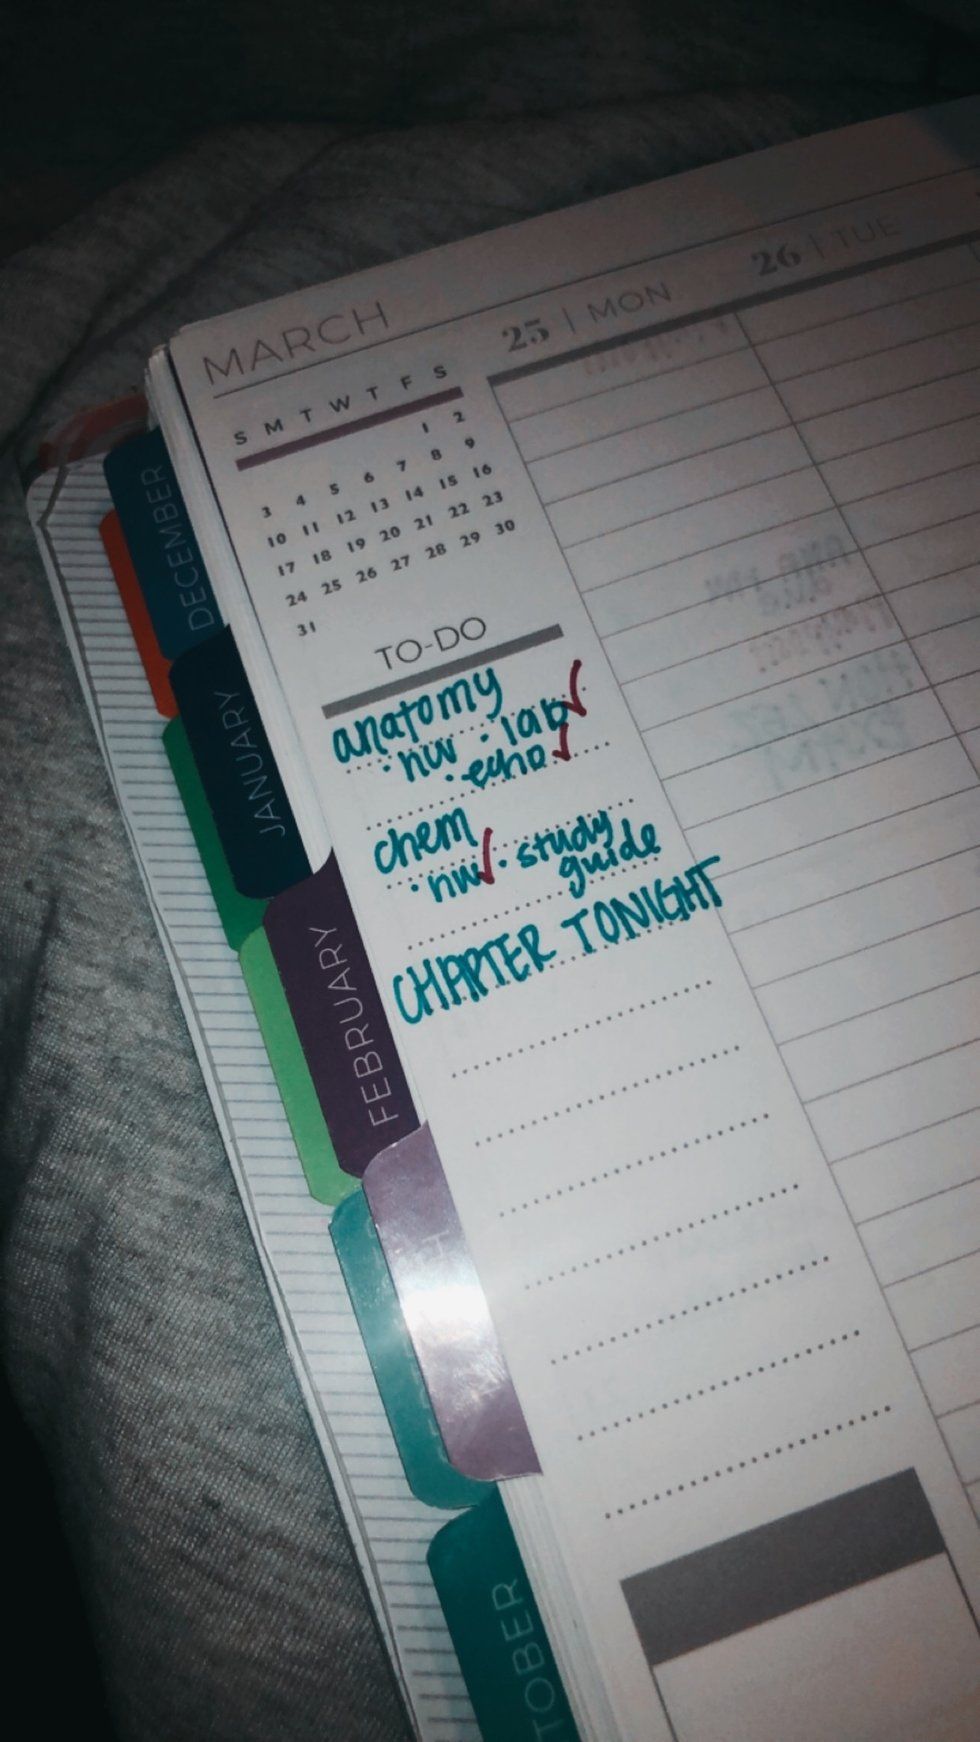 MARCH
25 | MON
26 | TUE
S M T W T F S
1 2
3 4 5 6 7 8 9
10 11 12 13 14 15 16
17 18 19 20 21 22 23
24 25 26 27 28 29 30
31
TO-DO
anatomy
· hw · lab ✓
· echo ✓
chem
· hw ✓ · study
guide
CHAPTER TONIGHT
DECEMBER
JANUARY
FEBRUARY
H
TOBER